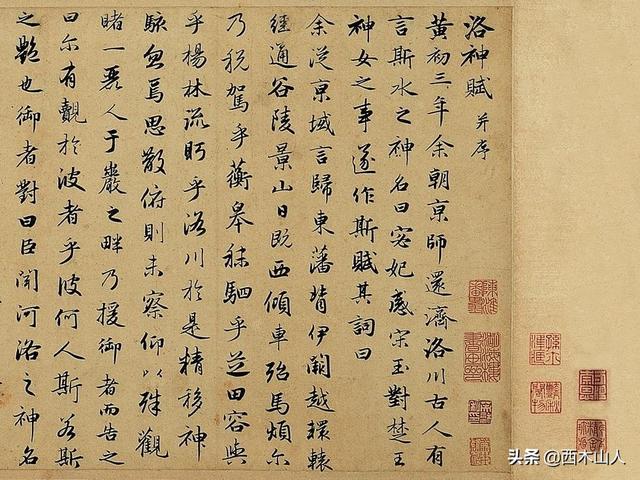 洛神賦 并序
黃初三年余朝京師還濟洛川古人有
言斯水之神名曰宓妃感宋玉對楚王
神女之事遂作斯賦其詞曰
余從京域言歸東藩背伊闕越轘轅
經通谷陵景山日既西傾車殆馬煩尔
乃稅駕乎蘅皋秣駟乎芝田容與
乎楊林流眄乎洛川於是精移神
駭忽焉思散俯則未察仰以殊觀
睹一麗人于巖之畔乃援御者而告之
曰尔有覿於彼者乎彼何人斯若斯
之艷也御者對曰臣聞河洛之神名
头条 @西木山人